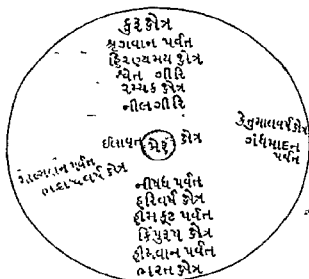 કુરુ ક્ષેત્ર
શ્રૃગવાન પર્વત
હિરણ્યમય ક્ષેત્ર
શ્વેત ગીરિ
રમ્યક ક્ષેત્ર
નીલગીરિ
ઈલાવૃત મેરૂ ક્ષેત્ર
કેતુમાલવર્ષ ક્ષેત્ર
ગંધમાદન
પર્વત
પર્વત
ક્ષેત્ર
નીષધ પર્વત
હરિવર્ષ ક્ષેત્ર
હીમકૂટ પર્વત
કિંપુરૂષ ક્ષેત્ર
હીમવાન પર્વત
ભારત ક્ષેત્ર